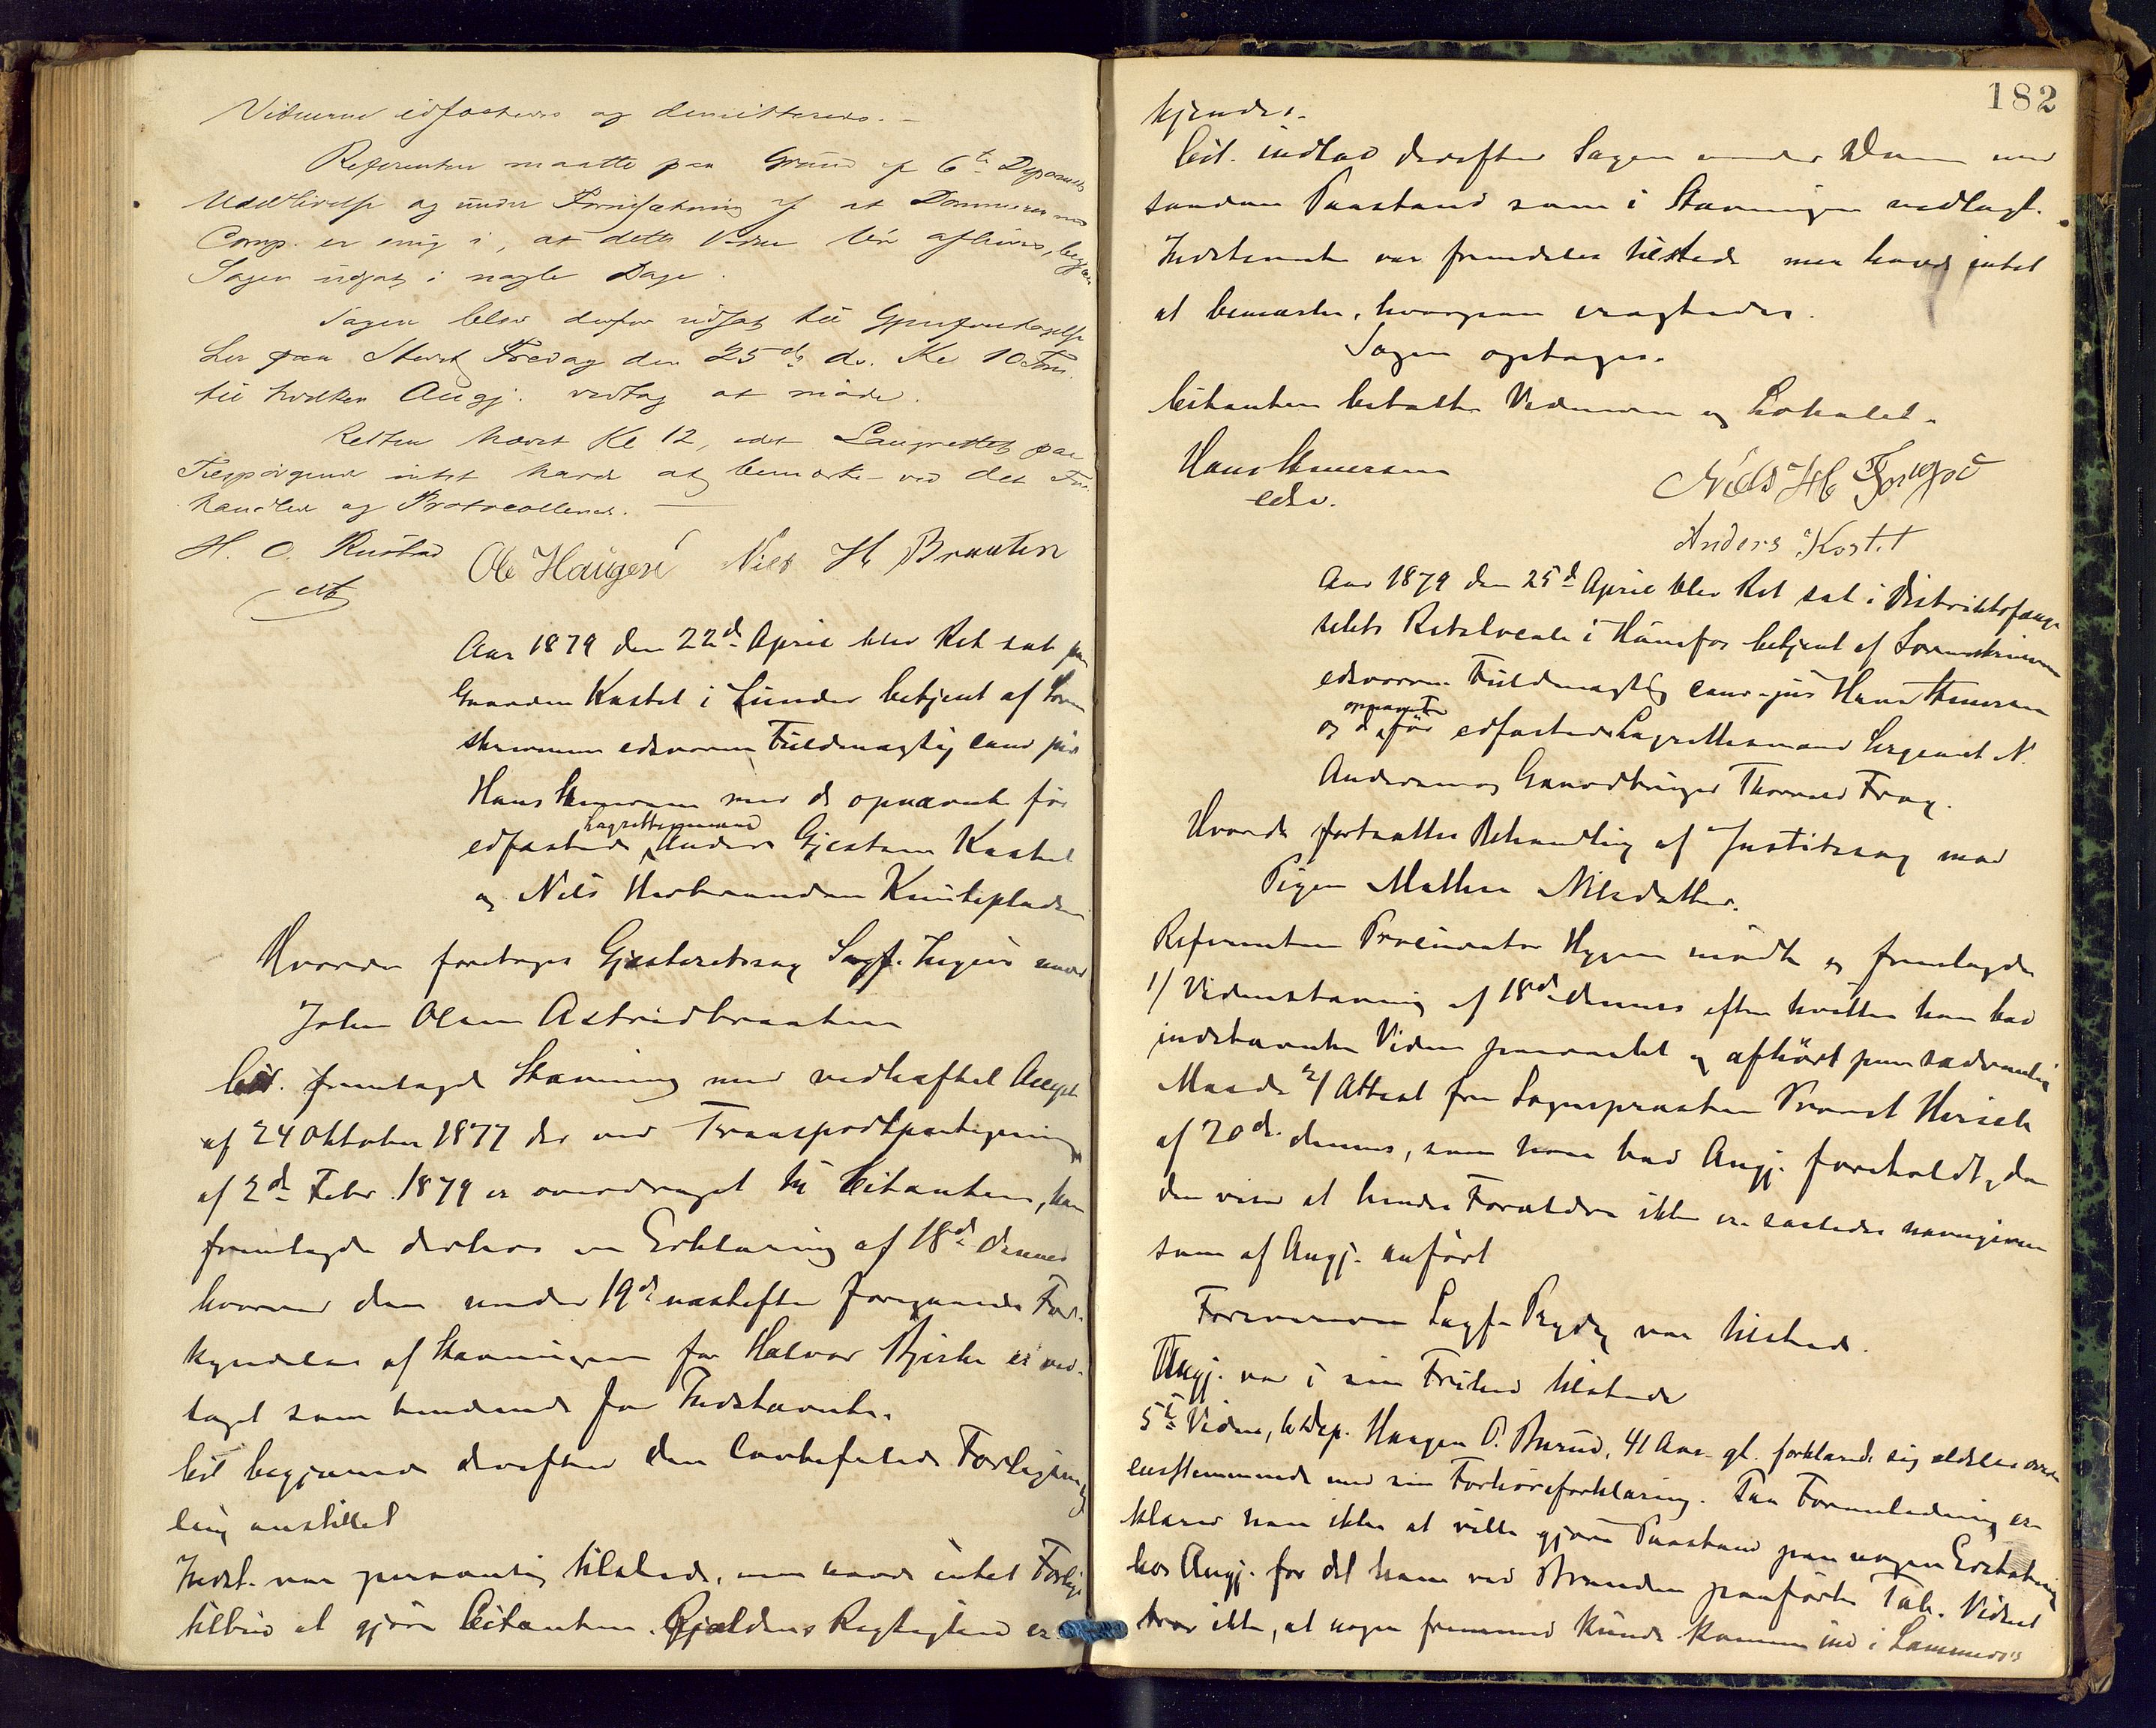 Vidnerne edfæstedes og demitteredes. –
Referenten maatte paa Grund af 6te Deponents
Udeblivelse og under Forudsætning af at Dommeren med
Comp. er enig i, at dette Vidne bör afhöres, begjære
Sagen udsat i nogle Dage.
Sagen blev derfor udsat til Gjenforetagelse
her paa Stedet Fredag den 25de ds. Kl 10 Form.
til hvilken Angj. vedtog at möde.
Retten hævet Kl 12, idet Laugrettet paa
Tilspörgende intet havde at bemærke ved det For-
handlede og Protocollerede. –
H. O. Rustad Ole Haugen Niels H. Braaten
Aar 1879 den 22de April blev Ret sat paa
Gaarden Kastet i Lunder betjent af Soren
skriverens edsvorne Fuldmægtig cand jur
Hans Kmersen med de opnævnte för
edfæstede Lagrettesmænd Anders Gjestsen Kastet
og Nils Herbrandsen Knutepladsen
Hvorda foretoges Gjesteretssag Sagf. mod
John Olsen Astridbraaten
Cit. fremlagde Stævning med vedhæftet Accept
af 24 Oktober 1877 der ved Transportpaategning
af 2de Febr. 1879 er overdraget til Citanten, han
fremlagde derhos en Erklæring af 18de dennes
hvorved den under 19de næstefter foregaaede For-
kyndelse af Stævningen for Halvor Bjerke er ved-
taget som bindende for Indstævnte.
Cit begjærede derefter den lovbefalede Forligsmæg
ling anstillet
Indst. var personlig tilstede, men havde intet Forligs
tilbud at gjöre Citanten. Gjældens Rigtighed er-
182
kjendes.
Cit. indlod derefter Sagen under Dom med
saadan Paastand som i Stævningen nedlagt.
Indstævnte var fremdeles tilstede men havde intet
at bemærke, hvorpaa eragtedes.
Sagen optages.
Citanten betalte Vidnerne og Lokalet.
Hans
edsv.
Nils H
Anders Kastet
Aar 1879 den 25de April blev Ret sat i Distriktsfæng-
selets Retslocale i Hönefos betjent af Sorenskriverens
edsvorne Fuldmægtig cand. jur Hans
og de opnævnte för edfæstede Lagrettesmænd Sergeant N.
Andersen og Gaardbruger Thorvald Frog.
Hvorda fortsattes Behandling af Justitssag mod
Pigen Mathea Nilsdatter.
Referenten Procurator Hygen mödte og fremlagde
1/ Vidnestævning af 18de dennes efter hvilken han bad
indstævnte Vidne paaraabt og afhört paa sædvanlig
Maade 2/ Attest fra Sognepræsten Provst Hersleb
af 20de dennes, som han bad Angj. foreholdt, da
den viser at hendes Forældre ikke er saaledes navngivne
som af Angj. anfört
Forsvareren Sagf. Prydz var tilstede.
Angj. var i sin Frihed tilstede
5te Vidne, 6te Dep. Haagen P. Burud, 41 Aar gl. forklarede sig aldeles over-
eensstemmende med sin Forhörsforklaring. Paa Foranledning er-
klærer han ikke at ville gjöre Paastand paa nogen Erstatning
hos Angj. for det ham ved Branden paaförte Tab. Vidnet
tror ikke, at nogen fremmed kunde komme ind i Kammers